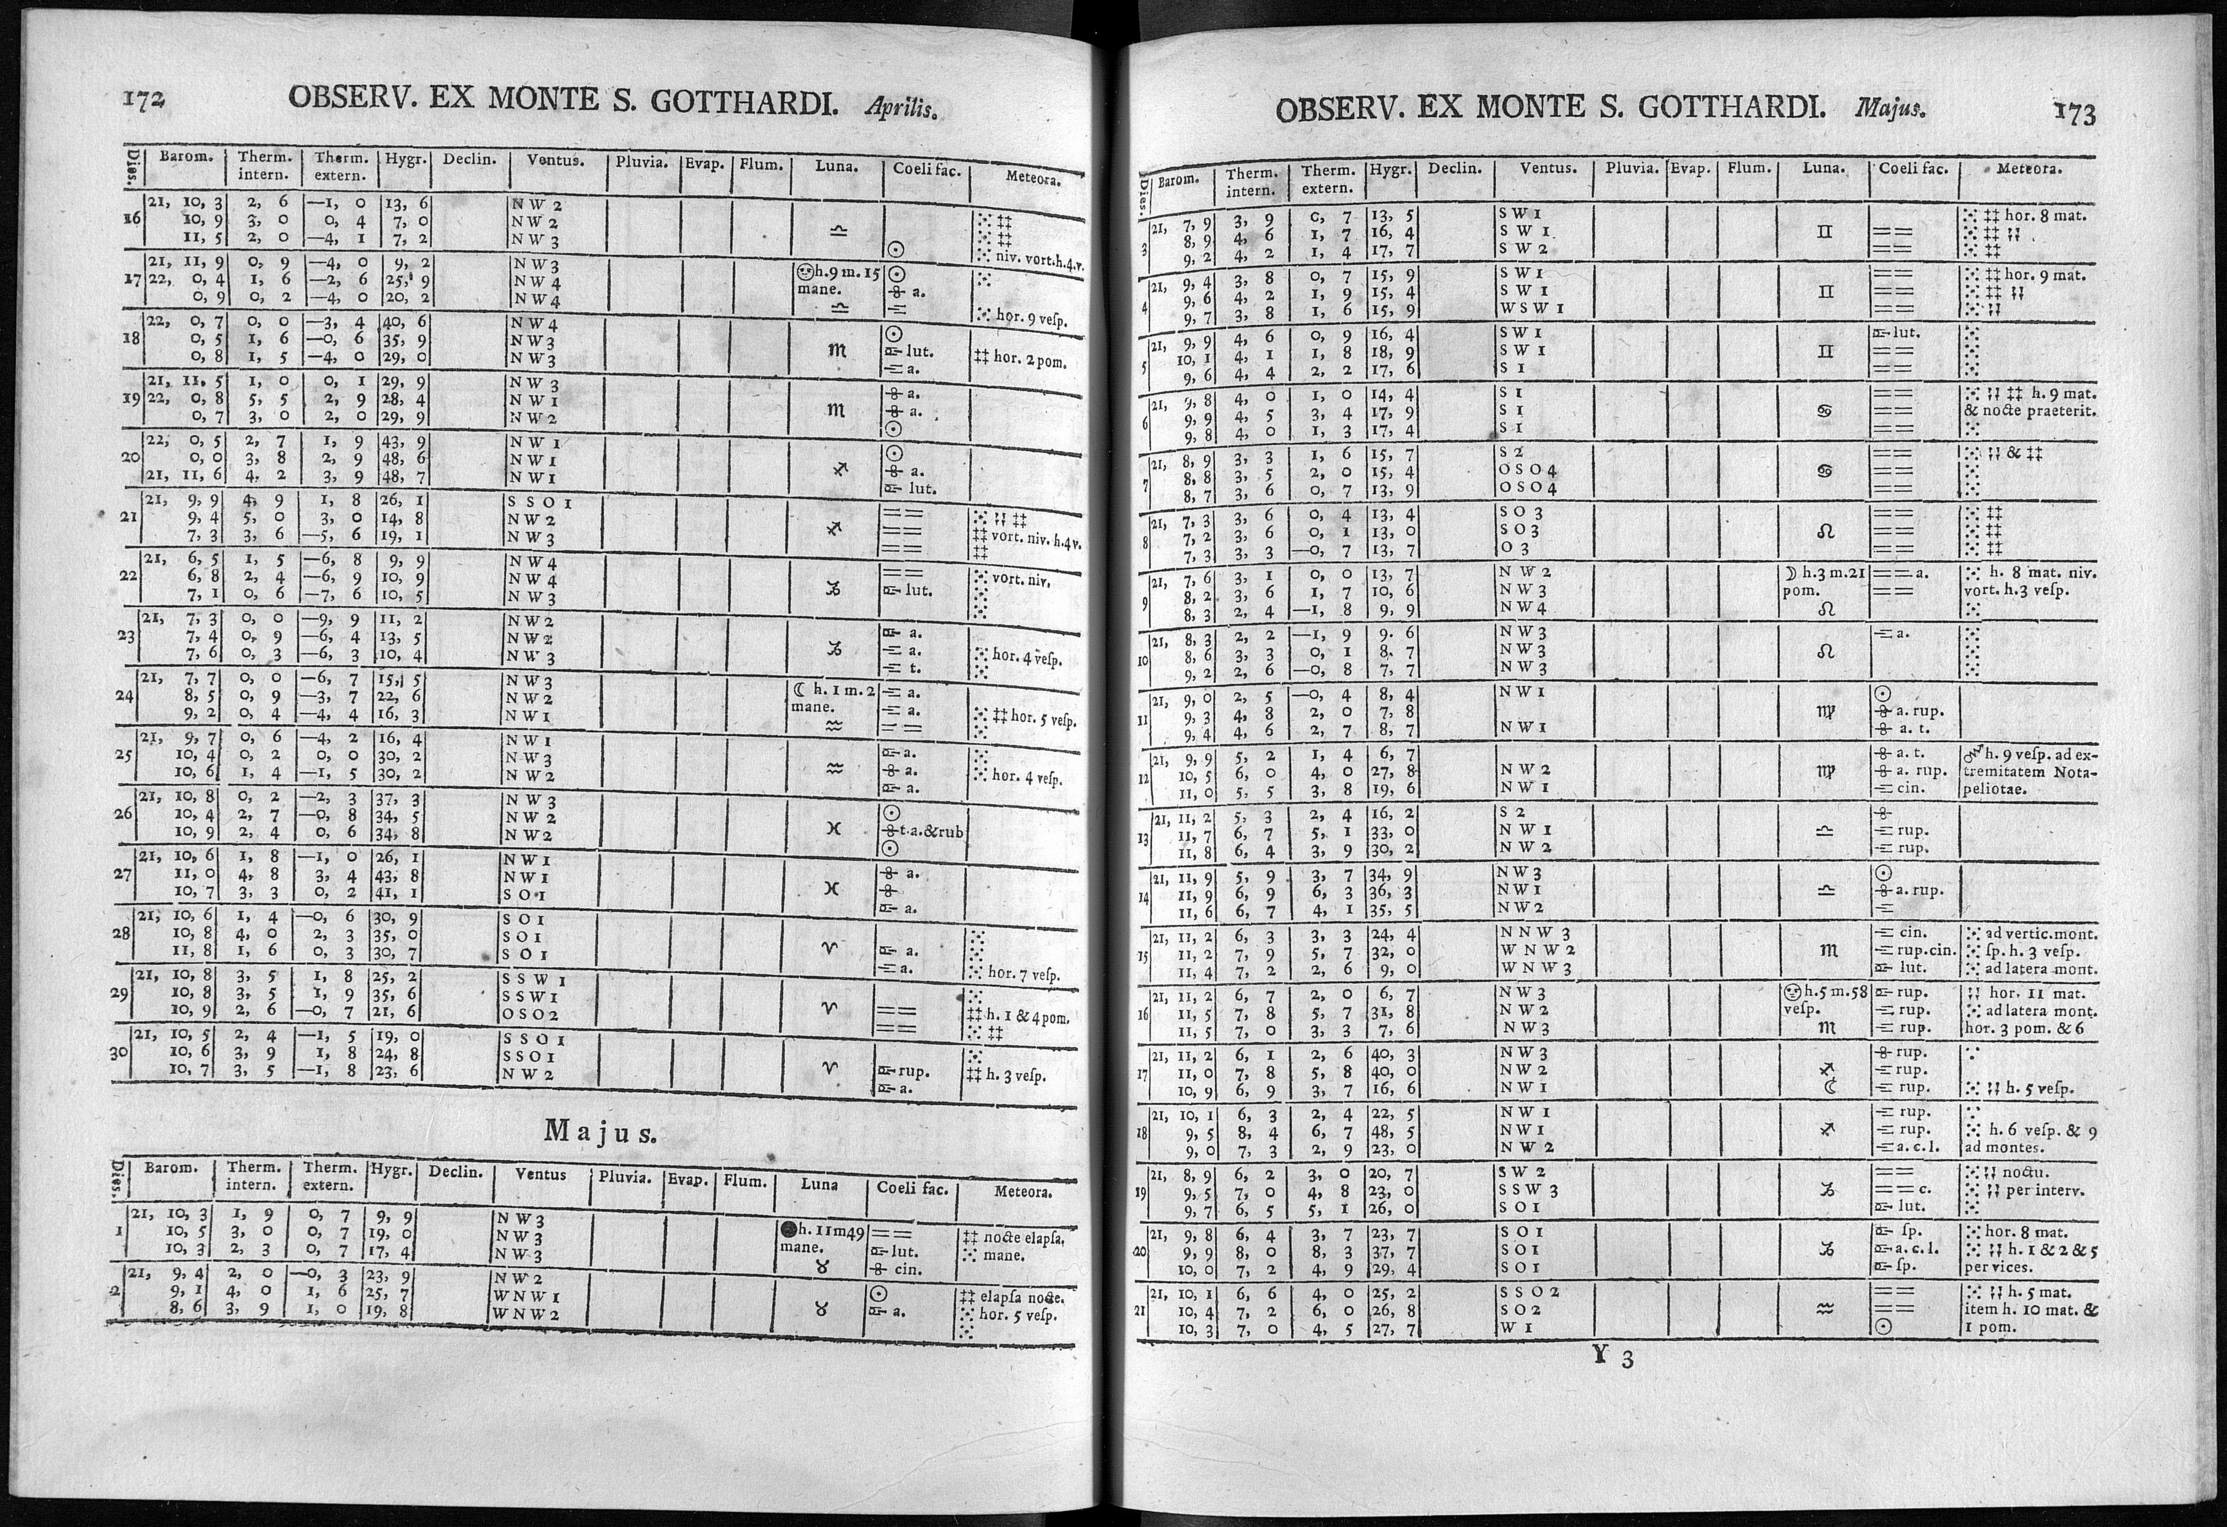 172 OBSERV. EX MONTE S. GOTTHARDI. Aprilis.
Dies. Barom. Therm. intern. Therm. extern. Hygr. Declin. Ventus. Pluvia. Evap. Flum. Luna. Coeli fac. Meteora.
16 21, 10, 3 2, 6 —1, 0 13, 6 N W 2 ⁙ ‡‡
10, 9 3, 0 0, 4 7, 0 N W 2 ⁙ ‡‡
11, 5 2, 0 —4, 1 7, 2 N W 3 ♎ ☉ ⁙ ‡‡
⁙ niv. vort.h.4.v.
17 21, 11, 9 0, 9 —4, 0 9, 2 N W 3 h.9 m.15 ☉ ⁙
22, 0, 4 1, 6 —2, 6 25, 9 N W 4 mane. a.
0, 9 0, 2 —4, 0 20, 2 N W 4 ♎ ⁙ hor. 9 veſp.
18 22, 0, 7 0, 0 —3, 4 40, 6 N W 4 ☉
0, 5 1, 6 —0, 6 35, 9 N W 3 ♏ lut. ‡‡ hor. 2 pom.
0, 8 1, 5 —4, 0 29, 0 N W 3 a.
19 21, 11, 5 1, 0 0, 1 29, 9 N W 3 a.
22, 0, 8 5, 5 2, 9 28, 4 N W 1 ♏ a.
0, 7 3, 0 2, 0 29, 9 N W 2 ☉
20 22, 0, 5 2, 7 1, 9 43, 9 N W 1 ☉
0, 0 3, 8 2, 9 48, 6 N W 1 ♐ a.
21, 11, 6 4, 2 3, 9 48, 7 N W 1 lut.
21 21, 9, 9 4, 9 1, 8 26, 1 S S O 1 == ⁙ ‡‡
9, 4 5, 0 3, 0 14, 8 N W 2 ♐ == ‡‡ vort. niv. h.4v.
7, 3 3, 6 —5, 6 19, 1 N W 3 == ‡‡
22 21, 6, 5 1, 5 —6, 8 9, 9 N W 4 == ⁙ vort. niv.
6, 8 2, 4 —6, 9 10, 9 N W 4 ♑ lut. ⁙
7, 1 0, 6 —7, 6 10, 5 N W 3 ⁙
23 21, 7, 3 0, 0 —9, 9 11, 2 N W 2 a.
7, 4 0, 9 —6, 4 13, 5 N W 2 ♑ a. ⁙ hor. 4 veſp.
7, 6 0, 3 —6, 3 10, 4 N W 3 t. ⁙
24 21, 7, 7 0, 0 —6, 7 15, 5 N W 3 ☾ h. 1 m. 2 a.
8, 5 0, 9 —3, 7 22, 6 N W 2 mane. a. ⁙ ‡‡ hor. 5 veſp.
9, 2 0, 4 —4, 4 16, 3 N W 1 ♒ == ⁙
25 21, 9, 7 0, 6 —4, 2 16, 4 N W 1 a. ⁙
10, 4 0, 2 0, 0 30, 2 N W 3 ♒ a. ⁙ hor. 4 veſp.
10, 6 1, 4 —1, 5 30, 2 N W 2 a.
26 21, 10, 8 0, 2 —2, 3 37, 3 N W 3 ☉
10, 4 2, 7 —0, 8 34, 5 N W 2 ♓ t.a.&rub
10, 9 2, 4 0, 6 34, 8 N W 2 ☉
27 21, 10, 6 1, 8 —1, 0 26, 1 N W 1 a.
11, 0 4, 8 3, 4 43, 8 N W 1 ♓
10, 7 3, 3 0, 2 41, 1 S O 1 a.
28 21, 10, 6 1, 4 —0, 6 30, 9 S O 1 ⁙
10, 8 4, 0 2, 3 35, 0 S O 1 ♈ a. ⁙
11, 8 1, 6 0, 3 30, 7 S O 1 a. ⁙ hor. 7 veſp.
29 21, 10, 8 3, 5 1, 8 25, 2 S S W 1 ⁙
10, 8 3, 5 1, 9 35, 6 S S W 1 ♈ == ‡‡ h. 1 & 4 pom.
10, 9 2, 6 —0, 7 21, 6 O S O 2 == ⁙ ‡‡
30 21, 10, 5 2, 4 —1, 5 19, 0 S S O 1 ⁙
10, 6 3, 9 1, 8 24, 8 S S O 1 ♈ rup. ‡‡ h. 3 veſp.
10, 7 3, 5 —1, 8 23, 6 N W 2 a.
Majus.
Dies. Barom. Therm. intern. Therm. extern. Hygr. Declin. Ventus Pluvia. Evap. Flum. Luna Coeli fac. Meteora.
1 21, 10, 3 1, 9 0, 7 9, 9 N W 3 ● h. 11m49 == ‡‡ nocte elapſa,
10, 5 3, 0 0, 7 19, 0 N W 3 mane. lut. ⁙ mane.
10, 3 2, 3 0, 7 17, 4 N W 3 ♉ cin.
2 21, 9, 4 2, 0 —0, 3 23, 9 N W 2 ☉ ‡‡ elapſa nocte.
9, 1 4, 0 1, 6 25, 7 W N W 1 ♉ a. ⁙ hor. 5 veſp.
8, 6 3, 9 1, 0 19, 8 W N W 2 ⁙
OBSERV. EX MONTE S. GOTTHARDI. Majus. 173
Dies. Barom. Therm. intern. Therm. extern. Hygr. Declin. Ventus. Pluvia. Evap. Flum. Luna. Coeli fac. Meteora.
3 21, 7, 9 3, 9 0, 7 13, 5 S W 1 ⁙ ‡‡ hor. 8 mat.
8, 9 4, 6 1, 7 16, 4 S W 1 ♊ == ⁙ ‡‡
9, 2 4, 2 1, 4 17, 7 S W 2 == ⁙ ‡‡
4 21, 9, 4 3, 8 0, 7 15, 9 S W 1 == ⁙ ‡‡ hor. 9 mat.
9, 6 4, 2 1, 9 15, 4 S W 1 ♊ == ⁙ ‡‡
9, 7 3, 8 1, 6 15, 9 W S W 1 == ⁙
5 21, 9, 9 4, 6 0, 9 16, 4 S W 1 lut. ⁙
10, 1 4, 1 1, 8 18, 9 S W 1 ♊ == ⁙
9, 6 4, 4 2, 2 17, 6 S 1 == ⁙
6 21, 9, 8 4, 0 1, 0 14, 4 S 1 == ⁙ ‡‡ h. 9 mat.
9, 9 4, 5 3, 4 17, 9 S 1 ♋ == & nocte praeterit.
9, 8 4, 0 1, 3 17, 4 S 1 == ⁙
7 21, 8, 9 3, 3 1, 6 15, 7 S 2 == ⁙ & ‡‡
8, 8 3, 5 2, 0 15, 4 O S O 4 ♋ == ⁙
8, 7 3, 6 0, 7 13, 9 O S O 4 == ⁙
8 21, 7, 3 3, 6 0, 4 13, 4 S O 3 == ⁙ ‡‡
7, 2 3, 6 0, 1 13, 0 S O 3 ♌ == ⁙ ‡‡
7, 3 3, 3 —0, 7 13, 7 O 3 == ⁙ ‡‡
9 21, 7, 6 3, 1 0, 0 13, 7 N W 2 ☽ h.3 m.21 == a. ⁙ h. 8 mat. niv.
8, 2 3, 6 1, 7 10, 6 N W 3 pom. == vort. h.3 veſp.
8, 3 2, 4 —1, 8 9, 9 N W 4 ♌ ⁙
10 21, 8, 3 2, 2 —1, 9 9. 6 N W 3 a. ⁙
8, 6 3, 3 0, 1 8, 7 N W 3 ♌ ⁙
9, 2 2, 6 —0, 8 7, 7 N W 3 ⁙
11 21, 9, 0 2, 5 —0, 4 8, 4 N W 1 ☉
9, 3 4, 8 2, 0 7, 8 ♍ a. rup.
9, 4 4, 6 2, 7 8, 7 N W 1 a. t.
12 21, 9, 9 5, 2 1, 4 6, 7 a. t. h. 9 veſp. ad ex-
10, 5 6, 0 4, 0 27, 8 N W 2 ♍ a. rup. tremitatem Nota-
11, 0 5, 5 3, 8 19, 6 N W 1 cin. peliotae.
13 21, 11, 2 5, 3 2, 4 16, 2 S 2
11, 7 6, 7 5, 1 33, 0 N W 1 ♎ rup.
11, 8 6, 4 3, 9 30, 2 N W 2 rup.
14 21, 11, 9 5, 9 3, 7 34, 9 N W 3 ☉
11, 9 6, 9 6, 3 36, 3 N W 1 ♎ a. rup.
11, 6 6, 7 4, 1 35, 5 N W 2
15 21, 11, 2 6, 3 3, 3 24, 4 N N W 3 cin. ⁙ ad vertic.mont.
11, 2 7, 9 5, 7 32, 0 W N W 2 ♏ rup.cin. ⁙ ſp. h. 3 veſp.
11, 4 7, 2 2, 6 9, 0 W N W 3 lut. ⁙ ad latera mont.
16 21, 11, 2 6, 7 2, 0 6, 7 N W 3 h.5 m.58 rup. hor. 11 mat.
11, 5 7, 8 5, 7 31, 8 N W 2 veſp. rup. ⁙ ad latera mont.
11, 5 7, 0 3, 3 7, 6 N W 3 ♏ rup. hor. 3 pom. & 6
17 21, 11, 2 6, 1 2, 6 40, 3 N W 3 rup.
11, 0 7, 8 5, 8 40, 0 N W 2 ♐ rup.
10, 9 6, 9 3, 7 16, 6 N W 1 ☾ rup. ⁙ h. 5 veſp.
18 21, 10, 1 6, 3 2, 4 22, 5 N W 1 rup.
9, 5 8, 4 6, 7 48, 5 N W 1 ♐ rup. ⁙ h. 6 veſp. & 9
9, 0 7, 3 2, 9 23, 0 N W 2 a. c. l. ad montes.
19 21, 8, 9 6, 2 3, 0 20, 7 S W 2 == ⁙ noctu.
9, 5 7, 0 4, 8 23, 0 S S W 3 ♑ == c. ⁙ per interv.
9, 7 6, 5 5, 1 26, 0 S O 1 lut. ⁙
20 21, 9, 8 6, 4 3, 7 23, 7 S O 1 ſp. ⁙ hor. 8 mat.
9, 9 8, 0 8, 3 37, 7 S O 1 ♑ a. c. l. ⁙ h. 1 & 2 & 5
10, 0 7, 2 4, 9 29, 4 S O 1 ſp. per vices.
21 21, 10, 1 6, 6 4, 0 25, 2 S S O 2 == ⁙ h. 5 mat.
10, 4 7, 2 6, 0 26, 8 S O 2 ♒ == item h. 10 mat. &
10, 3 7, 0 4, 5 27, 7 W 1 ☉ 1 pom.
Y 3